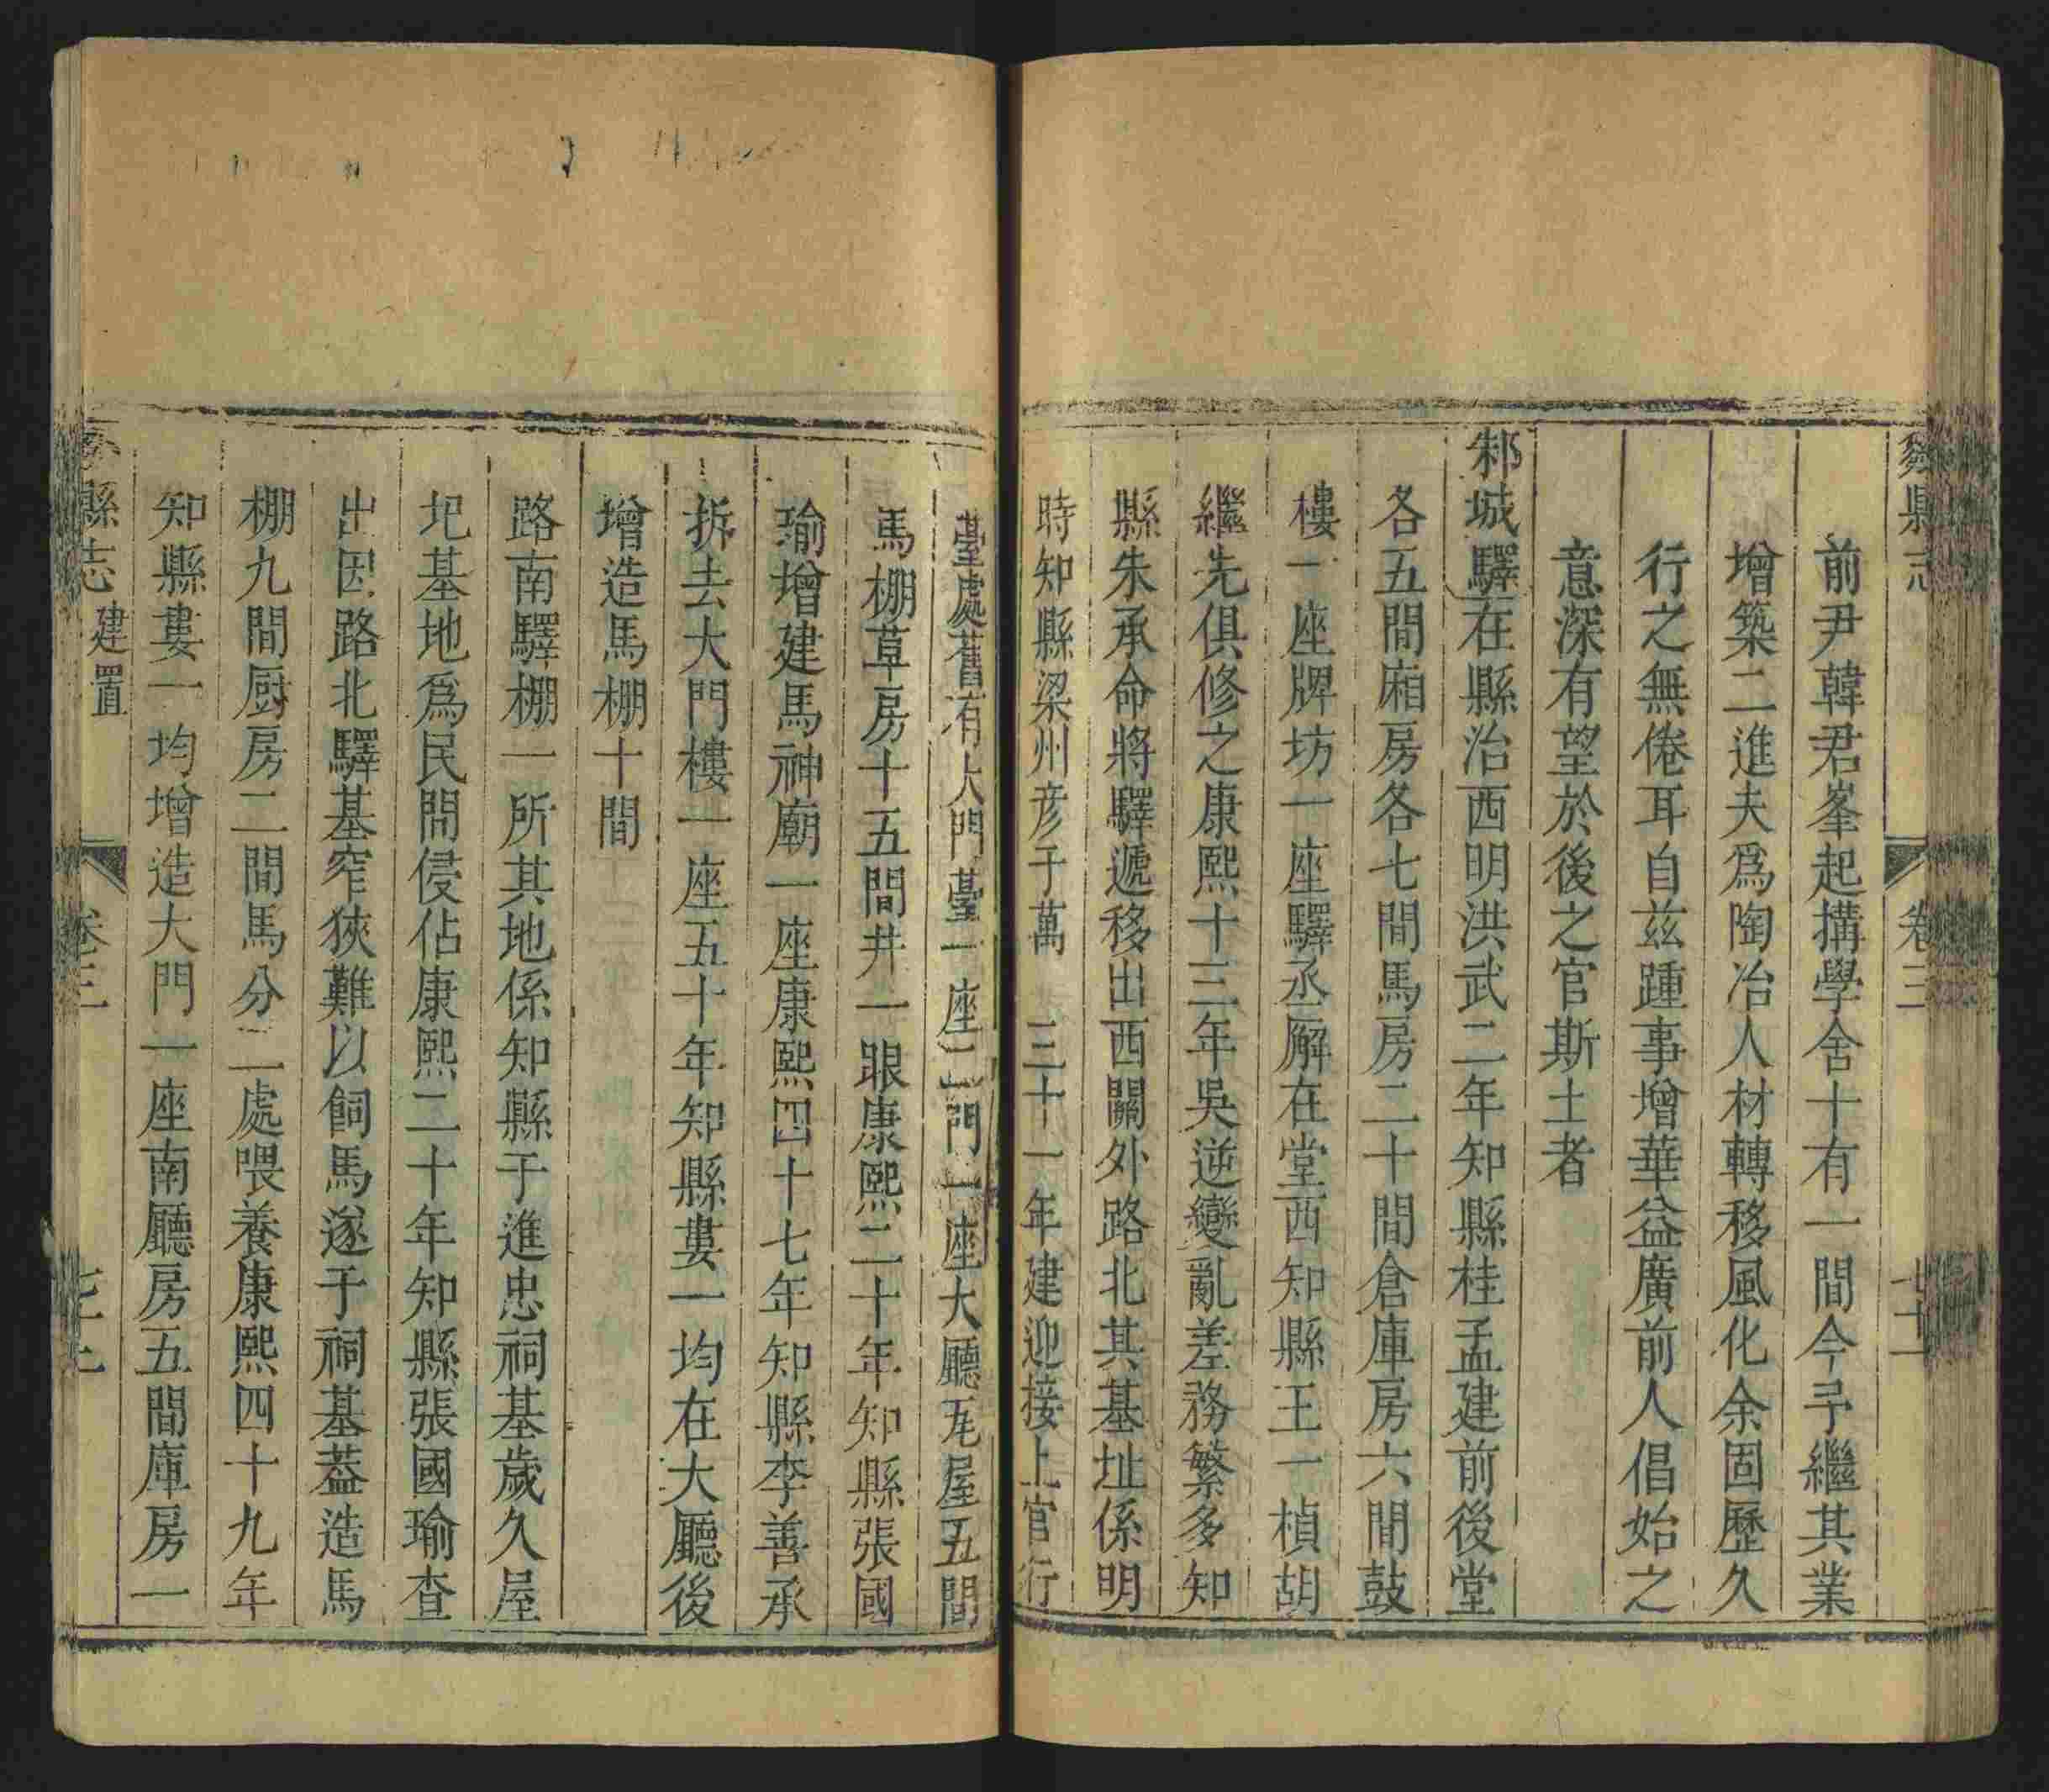 鄒縣志
卷三
七十一
前尹韓君峯起搆學舍十有一間今予繼其業
增築二進夫爲陶冶人材轉移風化余固歷久
行之無倦耳自兹踵事增華益廣前人倡始之
意深有望於後之官斯土者
邾城驛在縣治西明洪武二年知縣桂孟建前後堂
各五間廂房各七間馬房二十間倉庫房六間鼓
樓一座牌坊一座驛丞廨在堂西知縣王一楨胡
繼先俱修之康熙十三年吳逆變亂差務繁多知
縣朱承命將驛遞移出西關外路北其基址係明
時知縣梁州彥于萬 三十一年建迎接上官行
臺處舊有大門臺一座二門一座大廳瓦屋五間
馬棚草房十五間井一眼康熙二十年知縣張國
瑜增建馬神廟一座康熙四十七年知縣李善承
拆去大門樓一座五十年知縣婁一均在大廳後
增造馬棚十間
路南驛棚一所其地係知縣于進忠祠基歲久屋
圯基地爲民間侵佔康熙二十年知縣張國瑜查
出因路北驛基窄狹難以飼馬遂于祠基葢造馬
棚九間厨房二間馬分二處喂養康熙四十九年
知縣婁一均增造大門一座南廳房五間庫房一
縣志
建置
卷三